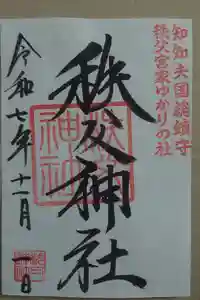 知知夫国総鎮守
秩父宮家ゆかりの社
秩父神社
令和七年十一月一日
秩父
神社